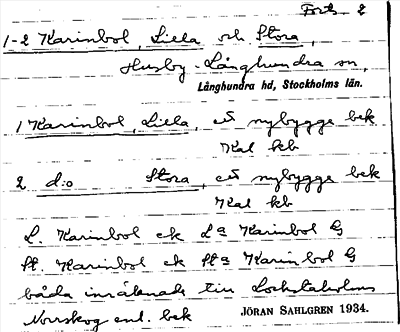 Forts. 2
1-2 Karinbol, Lilla och Stora,
Husby-Långhundra sn,
Långhundra hd, Stockholms län.
1 Karinbol, Lilla, ett nybygge bek
Kal kb
2 d:o Stora, ett nybygge bek
Kal kb
L. Karinbol ek La Karinbol G
St. Karinbol ek Sta Karinbol G
båda inräknade till
Norrskog enl. bek JÖRAN SAHLGREN 1934.